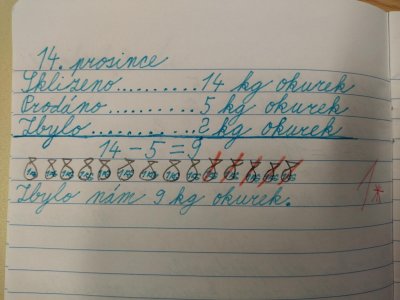 14. prosince
Sklizeno..........14 kg okurek
Prodáno..........5 kg okurek
Zbylo............? kg okurek
14 - 5 = 9
Zbylo nám 9 kg okurek.
1*